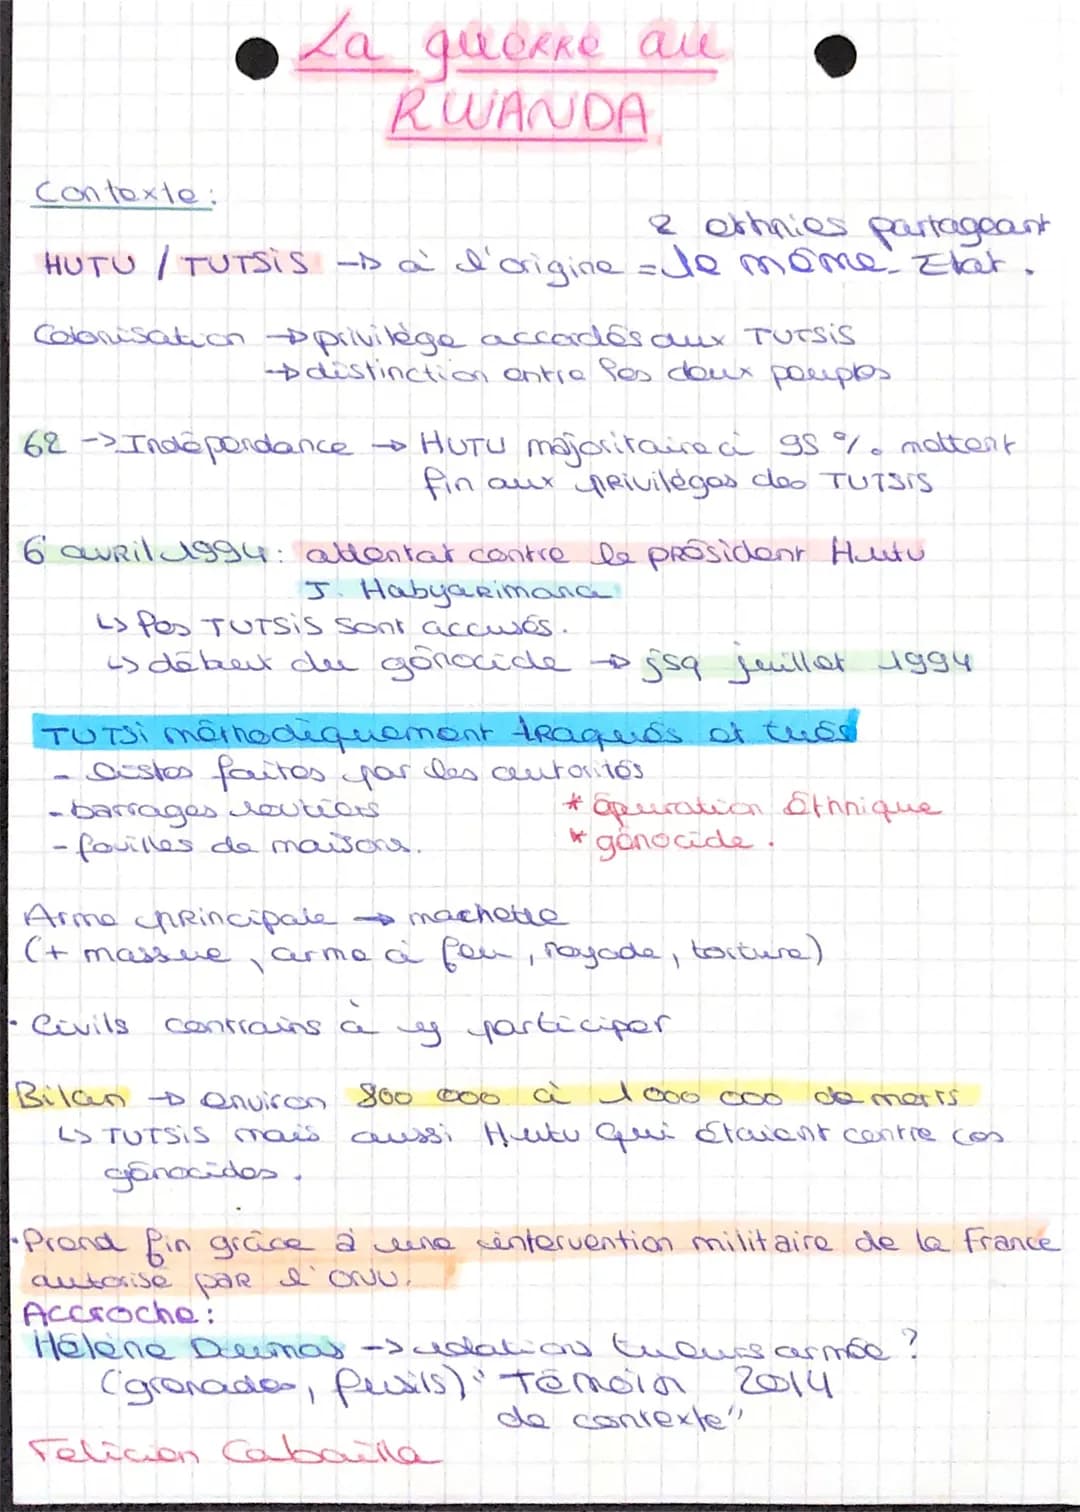 La guerre au
RWANDA
Contexte :
2 ethnies partageant
HUTU / TUTSIS -> à l'origine = le même Etat.
Colonisation -> privilège accordés aux TUTSIS
-> distinction entre les deux peuples
62 -> Indépendance -> HUTU majoritaire à 95 % mettent
fin aux privilèges des TUTSIS
6 avril 1994 : attentat contre le président Hutu
J. Habyarimana
↳ les TUTSIS sont accusés.
↳ début du génocide -> jsq juillet 1994
TUTSI méthodiquement traqués et tués
- listes faites par les autorités
- barrages routiers
* épuration éthnique
- fouilles de maisons.
* génocide.
Arme principale -> machette
(+ massue, arme à feu, noyade, torture)
• Civils contrains à y participer
Bilan -> environ 800 000 à 1 000 000 de morts
↳ TUTSIS mais aussi Hutu qui étaient contre ces
génocides.
• Prend fin grâce à une intervention militaire de la France
autorisé par l'ONU.
Accroche :
Hélène Dumas -> relation tueurs armée ?
(grenades, fusils) " Témoin 2014
de contexte"
Felicien Cabailla